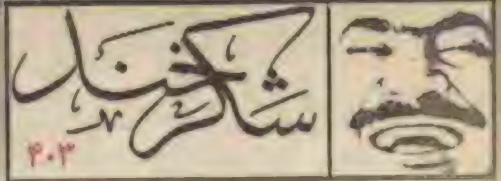 شکرخند
۴۰۳